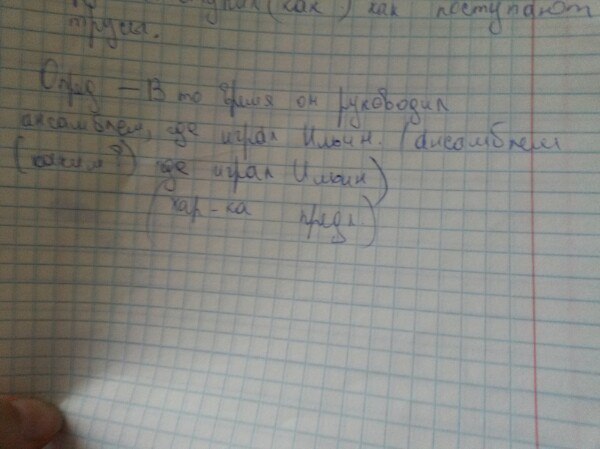 (как) как поступают
трусы.
Опред – В то время он руководил
ансамблем, где играл Ильин. (ансамблем
(каким?) где играл Ильин)
(хар-ка предл)